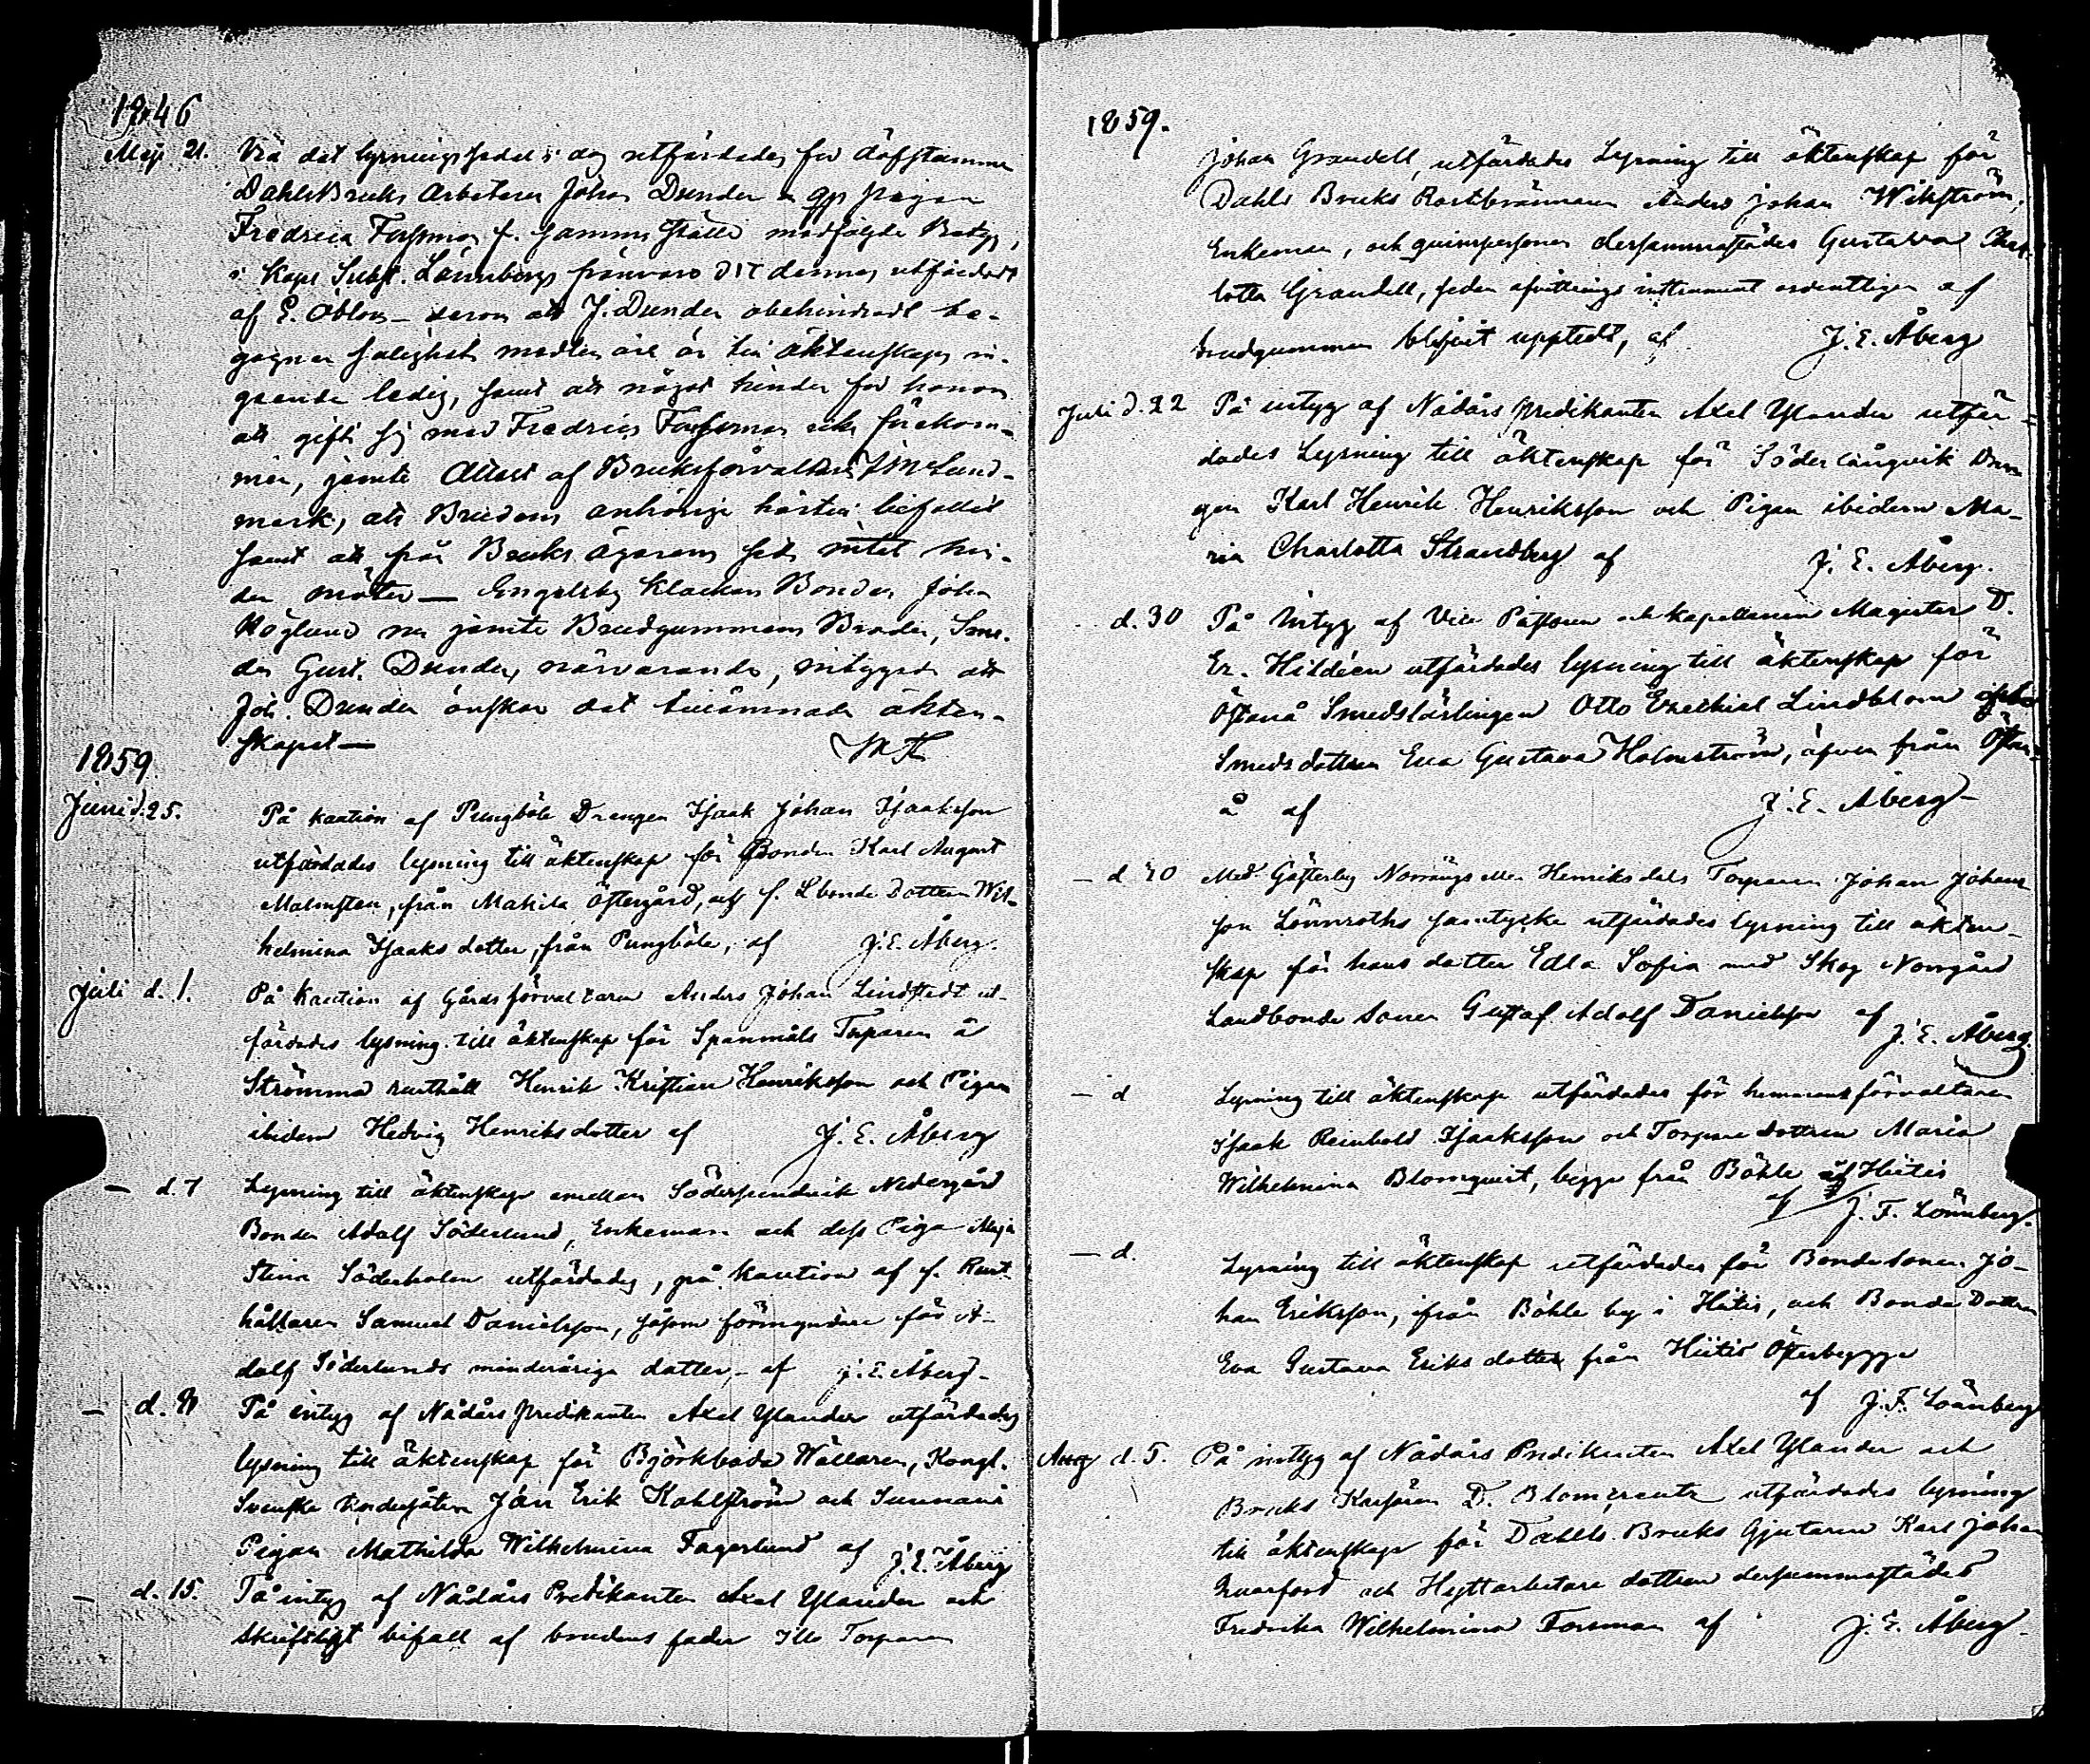 1846
Maji 21. Vid det lysningssedel i dag utfärdades för döfstumme
DahlsBruks Arbetaren Johan Dunder o qp pigan
Fredrica Forssman f. samma ställe medföljde Betyg,
i Kapl Subst. Lönnbergs frånvaro dit dennes utfärdadt
af E. Öblom – derom att J. Dunder obehindradt be-
gagnar salighets medlen och är till äktenskaps in-
gående ledig, samt att något hinder för honom
att gifta sig med Fredrica Forssman icke förekom-
mer, jemte Attest af Bruksförvaltaren J M Sund-
mark, att Brudens anhörige härtill bifallit
samt att från Bruks ägarens sida intet hin-
der möter — Engelsby Klackars Bonden Johan
Höglund nu jemte Brudgummens Broder, Sme-
den Gust. Dunder, närvarande, intygade att
Joh. Dunder önskar det tillämnade äkten-
skapet —
1859
Juni d. 25. På kaution af Pungböle Drängen Isaak Johan Isaaksson
utfärdades lysning till äktenskap för Bonden Karl August
Malmsten, från Makila Östergård, och f. Lbonde Dottern Wil-
helmina Isaaks dotter, från Pungböle, af J. E. Åberg.
Juli d. 1. På Kaution af Gårdsförvaltaren Anders Johan Lindstedt ut-
färdades lysning till äktenskap för Spanmåls Torparen å
Strömma rusthåll Henrik Kristian Henriksson och Pigan
ibidem Hedvig Henriksdotter af J. E. Åberg
— d. 7 Lysning till äktenskap emellan Södersundvik Nedergård
Bonden Adolf Söderlund, Enkeman och dess Piga Maja
Stina Söderholm utfärdades, på kaution af f. Rust-
hållaren Samuel Danielsson, såsom förmyndare för A-
dolf Söderlunds minderåriga dotter, – af J. E. Åberg –
— d. På intyg af Nådårs predikanten Axel Ylander utfärdades
lysning till äktenskap för Björkboda Wällaren, Kongl.
Svenske Undersåten Jan Erik Kohlström och Sunnanå
Pigan Mathilda Wilhelmina Fagerlund af J. E. Åberg
— d. 15. På intyg af Nådårs Predikanten Axel Ylander och
skriftligt bifall af brudens fader Illo Torparen
1859.
Johan Grandell, utfärdades Lysning till äktenskap för
Dahls Bruks Rostbrännaren Anders Johan Wikström,
Enkeman, och qvinspersonen dersammastädes Gustava Char-
lotta Grandell, sedan afvittrings instrument ordentligen af
brudgummen blifvit upptedt, af J. E. Åberg
Juli d. 22 På intyg af Nådårs predikanten Axel Ylander utfär-
dades Lysning till äktenskap för Söderlångvik Drän
gen Karl Henrik Henriksson och Pigan ibidem Ma-
ria Charlotta Strandberg af J. E. Åberg.
d. 30 På Intyg af Vice Pastorn och kapellanen Magister D.
Er. Hildéen utfärdades lysning till äktenskap för
Östanå Smedslärlingen Otto Ezechiel Lindblom och
Smedsdottern Eva Gustava Holmström, äfven från Östan-
å af J. E. Åberg –
— d. 30 Med Gästerby Norrängs eller Henriksdals Torparen Johan Johans
son Lönnroths samtycke utfärdades lysning till äkten-
skap för hans dotter Edla Sofia med Skog Norrgård
Landbonde sonen Gustaf Adolf Danielsson af J. E. Åberg.
— d Lysning till äktenskap utfärdades för hemmansförvaltaren
Isaak Reinhold Isaaksson och Torpare dottren Maria
Wilhelmina Blomqvist, begge från Böhle af Hiitis
af J. F. Lönnberg.
— d. Lysning till äktenskap utfärdades för Bondesonen Jo-
han Eriksson, ifrån Böhle by i Hiitis, och Bonde Dottren
Eva Gustava Eriksdotter från Hiitis Österbygge
af J. F. Lönnberg
Aug d. 5. På intyg af Nådårs Predikanten Axel Ylander och
Bruks Kassören D. Blomcreutz utfärdades lysning
till äktenskap för Dahls Bruks Gjutaren Karl Johan
Qvarford och Hyttarbetare dottren dersammastädes
Fredrika Wilhelmina Forsman af J. E. Åberg –